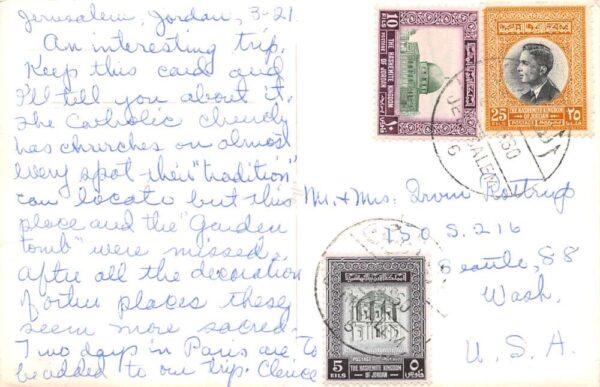 Jerusalem, Jordan, 3-21
An interesting trip.
Keep this card and
I'll tell you about it.
The Catholic church
has churches on almost
every spot their "tradition"
can locate but this
place and the "Garden
tomb" were missed.
After all the decoration
of other places these
seem more sacred.
Two days in Paris are to
be added to our trip. Clence
10
FILS
THE HASHEMITE KINGDOM
OF JORDAN
POSTAGE
١٠
25
THE HASHEMITE KINGDOM
OF JORDAN
POSTAGE
٢٥
JERUSALEM
60
6
Mr. & Mrs. Irvin
750 S. 216
Seattle, 88
Wash.
U. S. A.
POSTAGE
5
FILS
THE HASHEMITE KINGDOM
OF JORDAN
٥
فلس